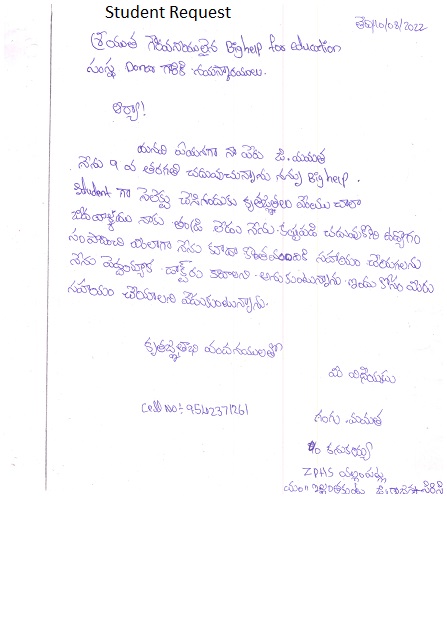 Student Request
తేది/10/08/2022
శ్రీయుత గౌరవనీయులైన Big help for education
సంస్థ Donar గారికి నమస్కారములు.
ఆర్యా!
నా పేరు జి. మమత
నేను 9 వ తరగతి చదువుచున్నాను నన్ను Big help.
Student గా సెలెక్ట్ చేసినందుకు కృతజ్ఞతలు మేము చాలా
నాకు తండ్రి లేడు నేను కష్టపడి చదువుకొని ఉద్యోగం
సంపాదించి నేను కూడా సహాయం చేయగలను
నేను డాక్టరు కావాలని అనుకుంటున్నాను మీరు
సహాయం చేయాలని వేడుకుంటున్నాను.
కృతజ్ఞతాభి వందనములతో
మీ విధేయురాలు
Cell No: 9542371261
గంగు. మమత
ZPHS